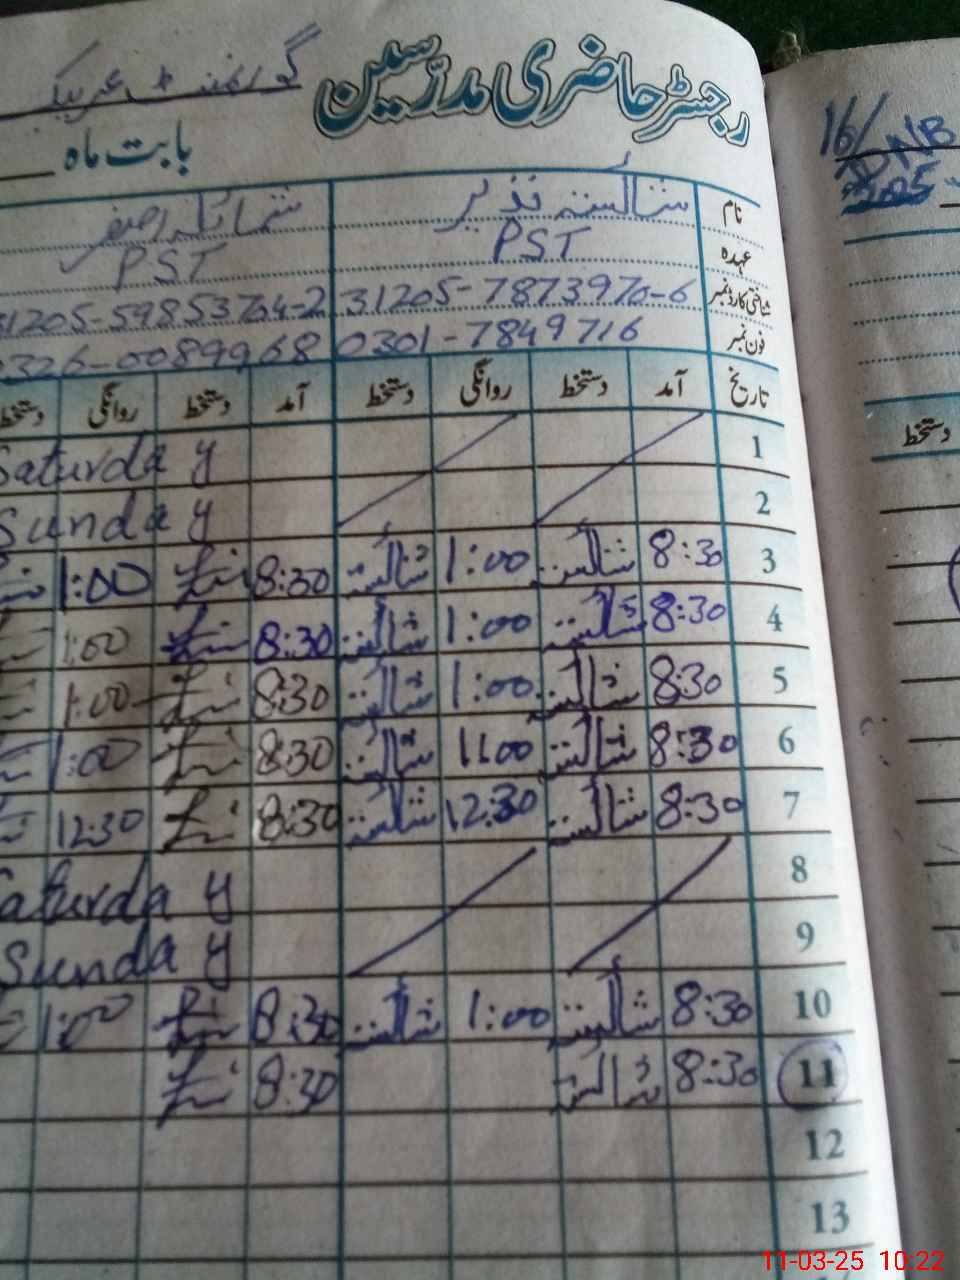 رجسٹر حاضری مدرسین
بابت ماہ
نام شائستہ نذیر شمائلہ اصغر
عہدہ PST PST
شناختی کارڈ نمبر 31205-7873970-6 31205-59853704-2
فون نمبر 0301-7849716 0326-0089968
تاریخ آمد دستخط روانگی دستخط آمد دستخط روانگی دستخط
1 Saturday
2 Sunday
3 8:30 شائستہ 1:00 شائستہ 8:30 1:00
4 8:30 شائستہ 1:00 شائستہ 8:30 1:00
5 8:30 شائستہ 1:00 شائستہ 8:30 1:00
6 8:30 شائستہ 1:00 شائستہ 8:30 1:00
7 8:30 شائستہ 12:30 شائستہ 8:30 12:30
8 Saturday
9 Sunday
10 8:30 شائستہ 1:00 شائستہ 8:30 1:00
11 8:30 شائستہ 8:30
12
13
16/
دستخط
11-03-25 10:22